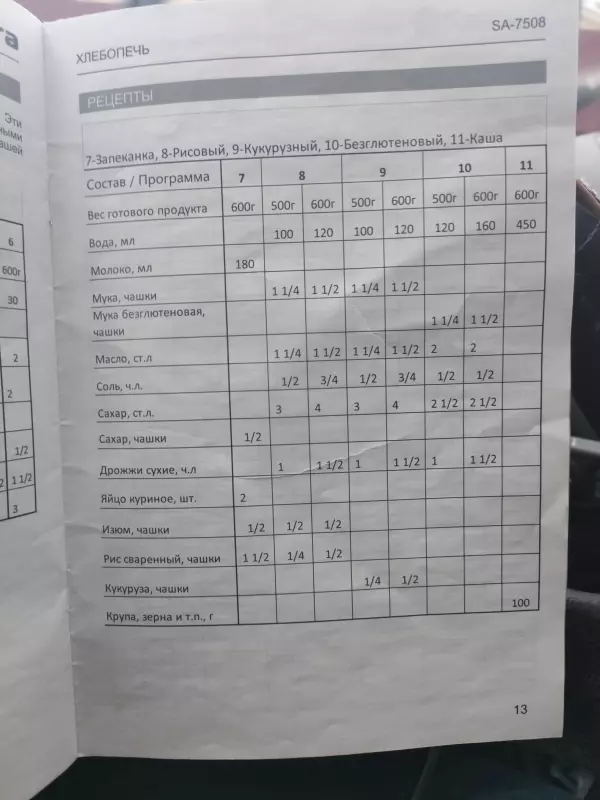 та
Эти
ными
ашей
6
600г
30
2
2
1/2
2 1 1/2
3
ХЛЕБОПЕЧЬ SA-7508
РЕЦЕПТЫ
7-Запеканка, 8-Рисовый, 9-Кукурузный, 10-Безглютеновый, 11-Каша
Состав / Программа 7 8 9 10 11
Вес готового продукта 600г 500г 600г 500г 600г 500г 600г 600г
Вода, мл 100 120 100 120 120 160 450
Молоко, мл 180
Мука, чашки 1 1/4 1 1/2 1 1/4 1 1/2
Мука безглютеновая,
чашки 1 1/4 1 1/2
Масло, ст.л 1 1/4 1 1/2 1 1/4 1 1/2 2 2
Соль, ч.л. 1/2 3/4 1/2 3/4 1/2 1/2
Сахар, ст.л. 3 4 3 4 2 1/2 2 1/2
Сахар, чашки 1/2
Дрожжи сухие, ч.л 1 1 1/2 1 1 1/2 1 1 1/2
Яйцо куриное, шт. 2
Изюм, чашки 1/2 1/2 1/2
Рис сваренный, чашки 1 1/2 1/4 1/2
Кукуруза, чашки 1/4 1/2
Крупа, зерна и т.п., г 100
13